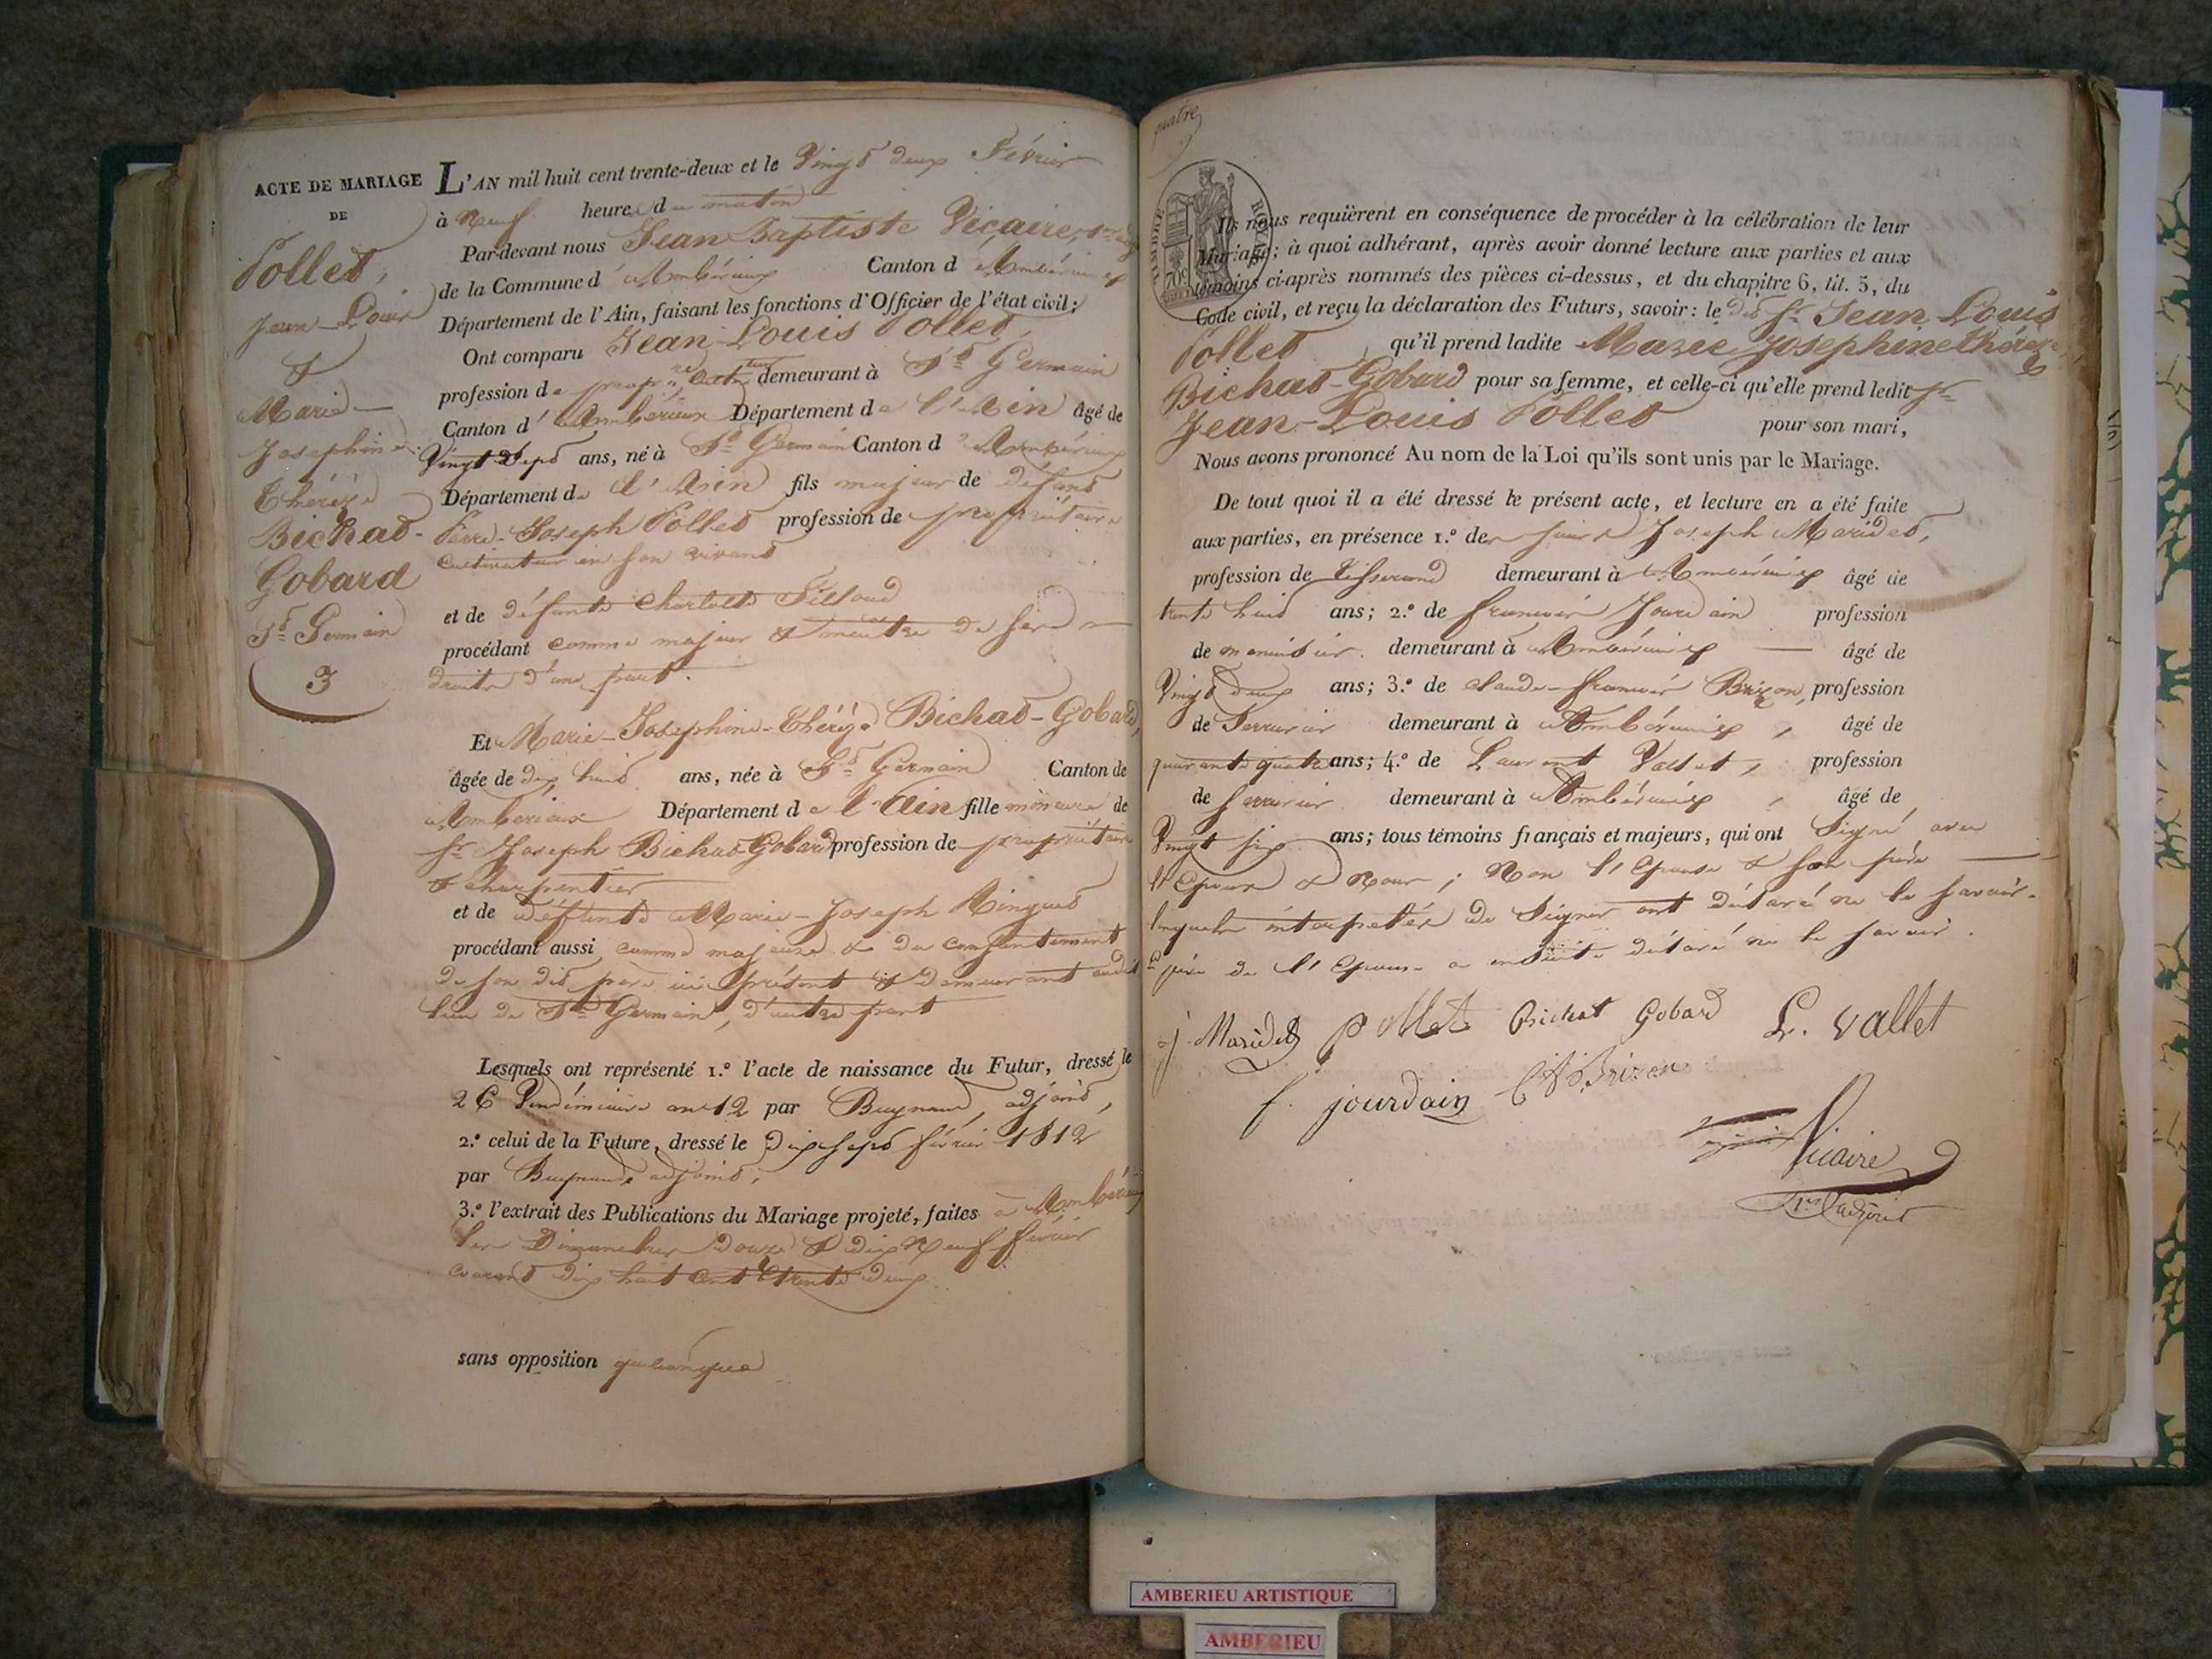 ACTE DE MARIAGE
DE
Pollet,
Jean-Louis
&
Marie-
Josephine
Thérèze
Bichat-
Gobard
St Germain
3
L'AN mil huit cent trente-deux et le Vingt deux Février
à Neuf heures du matin
Par-devant nous Jean Baptiste Vicaire, 1er adj
de la Commune d'Ambérieux Canton d'Ambérieux
Département de l'Ain, faisant les fonctions d'Officier de l'état civil;
Ont comparu Jean-Louis Pollet,
profession de propre cultr demeurant à St Germain
Canton d'Ambérieux Département de l'Ain âgé de
Vingt Sept ans, né à St Germain Canton d'Ambérieux
Département de l'Ain fils majeur de défunt
Pierre-Joseph Pollet profession de propriétaire
cultivateur en son vivant
et de défunte Charlotte
procédant comme majeur & maître de ses
droits d'une part.
Et Marie-Josephine-Thérèze Bichat-Gobard,
âgée de dix huit ans, née à St Germain Canton de
Ambérieux Département de l'Ain fille mineure de
Sr Joseph Bichat Gobard profession de propriétaire
& charpentier
et de défunte Marie-Joseph Ringuet
procédant aussi comme majeure & du consentement
de son dit père ici présent & demeurant audit
lieu de St Germain, d'autre part
Lesquels ont représenté 1.º l'acte de naissance du Futur, dressé le
26 Vendémiaire an 12 par Buynand, adjoint,
2.º celui de la Future, dressé le Dix sept février 1812
par Buynand adjoint;
3.º l'extrait des Publications du Mariage projeté, faites à Ambérieux
les Dimanches douze & dix Neuf février
courant dix huit cent trente deux
sans opposition quelconque
quatre
TIMBRE ROYAL
70c
Ils nous requièrent en conséquence de procéder à la célébration de leur
Mariage; à quoi adhérant, après avoir donné lecture aux parties et aux
témoins ci-après nommés des pièces ci-dessus, et du chapitre 6, tit. 5, du
Code civil, et reçu la déclaration des Futurs, savoir: le dit Sr Jean Louis
Pollet, qu'il prend ladite Marie Josephine thérèze
Bichat-Gobard pour sa femme, et celle-ci qu'elle prend ledit Sr
Jean-Louis Pollet pour son mari,
Nous avons prononcé Au nom de la Loi qu'ils sont unis par le Mariage.
De tout quoi il a été dressé le présent acte, et lecture en a été faite
aux parties, en présence 1.º de Joseph Maridet,
profession de tisserand demeurant à Ambérieux âgé de
trente huit ans; 2.º de françois Jourdain profession
de menuisier demeurant à Ambérieux âgé de
Vingt deux ans; 3.º de claude-françois Brizon, profession
de Serrurier demeurant à Ambérieux, âgé de
quarante quatre ans; 4.º de Laurent Vallet, profession
de serrurier demeurant à Ambérieux, âgé de
Vingt six ans; tous témoins français et majeurs, qui ont Signé avec
l'Epoux & Nous; Non l'Epouse & son père
lesquels interpelés de Signer ont déclaré ne le savoir.
père de l'Epouse a ensuite déclaré ne le savoir.
j. Maridet Pollet Bichat Gobard L. vallet
f. jourdain C F Brizon
Vicaire
1er adjoint
AMBERIEU ARTISTIQUE
AMBERIEU